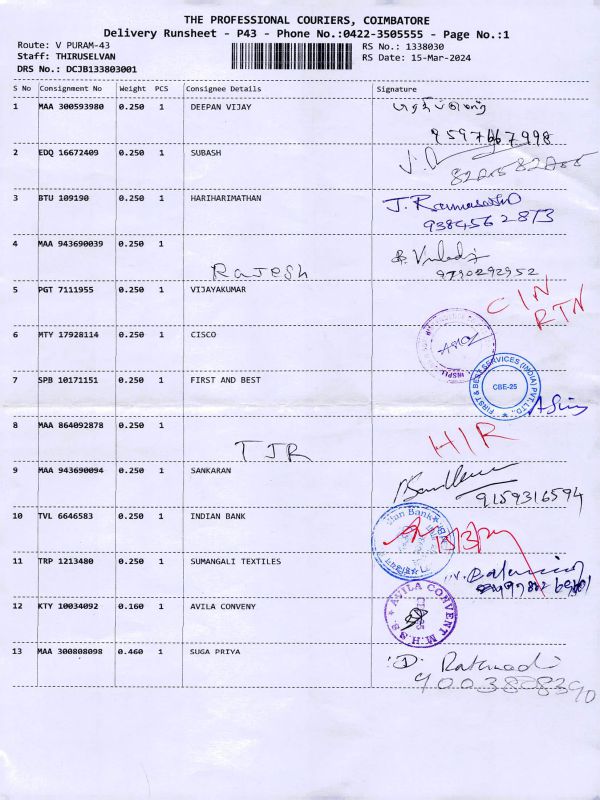 THE PROFESSIONAL COURIERS, COIMBATORE
Delivery Runsheet - P43 - Phone No.:0422-3505555 - Page No.:1
Route: V PURAM-43 RS No.: 1338030
Staff: THIRUSELVAN RS Date: 15-Mar-2024
DRS No.: DCJB133803001
S No Consignment No Weight PCS Consignee Details Signature
1 MAA 300593980 0.250 1 DEEPAN VIJAY
9597667998
2 EDQ 16672409 0.250 1 SUBASH
3 BTU 109190 0.250 1 HARIHARIMATHAN J.
9384562813
4 MAA 943690039 0.250 1
Rajesh 9790292952
5 PGT 7111955 0.250 1 VIJAYAKUMAR CIN
RTN
6 MTY 17928114 0.250 1 CISCO
7 SPB 10171151 0.250 1 FIRST AND BEST FIRST & BEST SERVICES (INDIA) PVT. LTD.
CBE-25
8 MAA 864092878 0.250 1 HIR
TJR
9 MAA 943690094 0.250 1 SANKARAN
9159316594
10 TVL 6646583 0.250 1 INDIAN BANK Indian Bank
11 TRP 1213480 0.250 1 SUMANGALI TEXTILES
12 KTY 10034092 0.160 1 AVILA CONVENY AVILA CONVENT M.H.S.S
13 MAA 300808098 0.460 1 SUGA PRIYA
9003898390